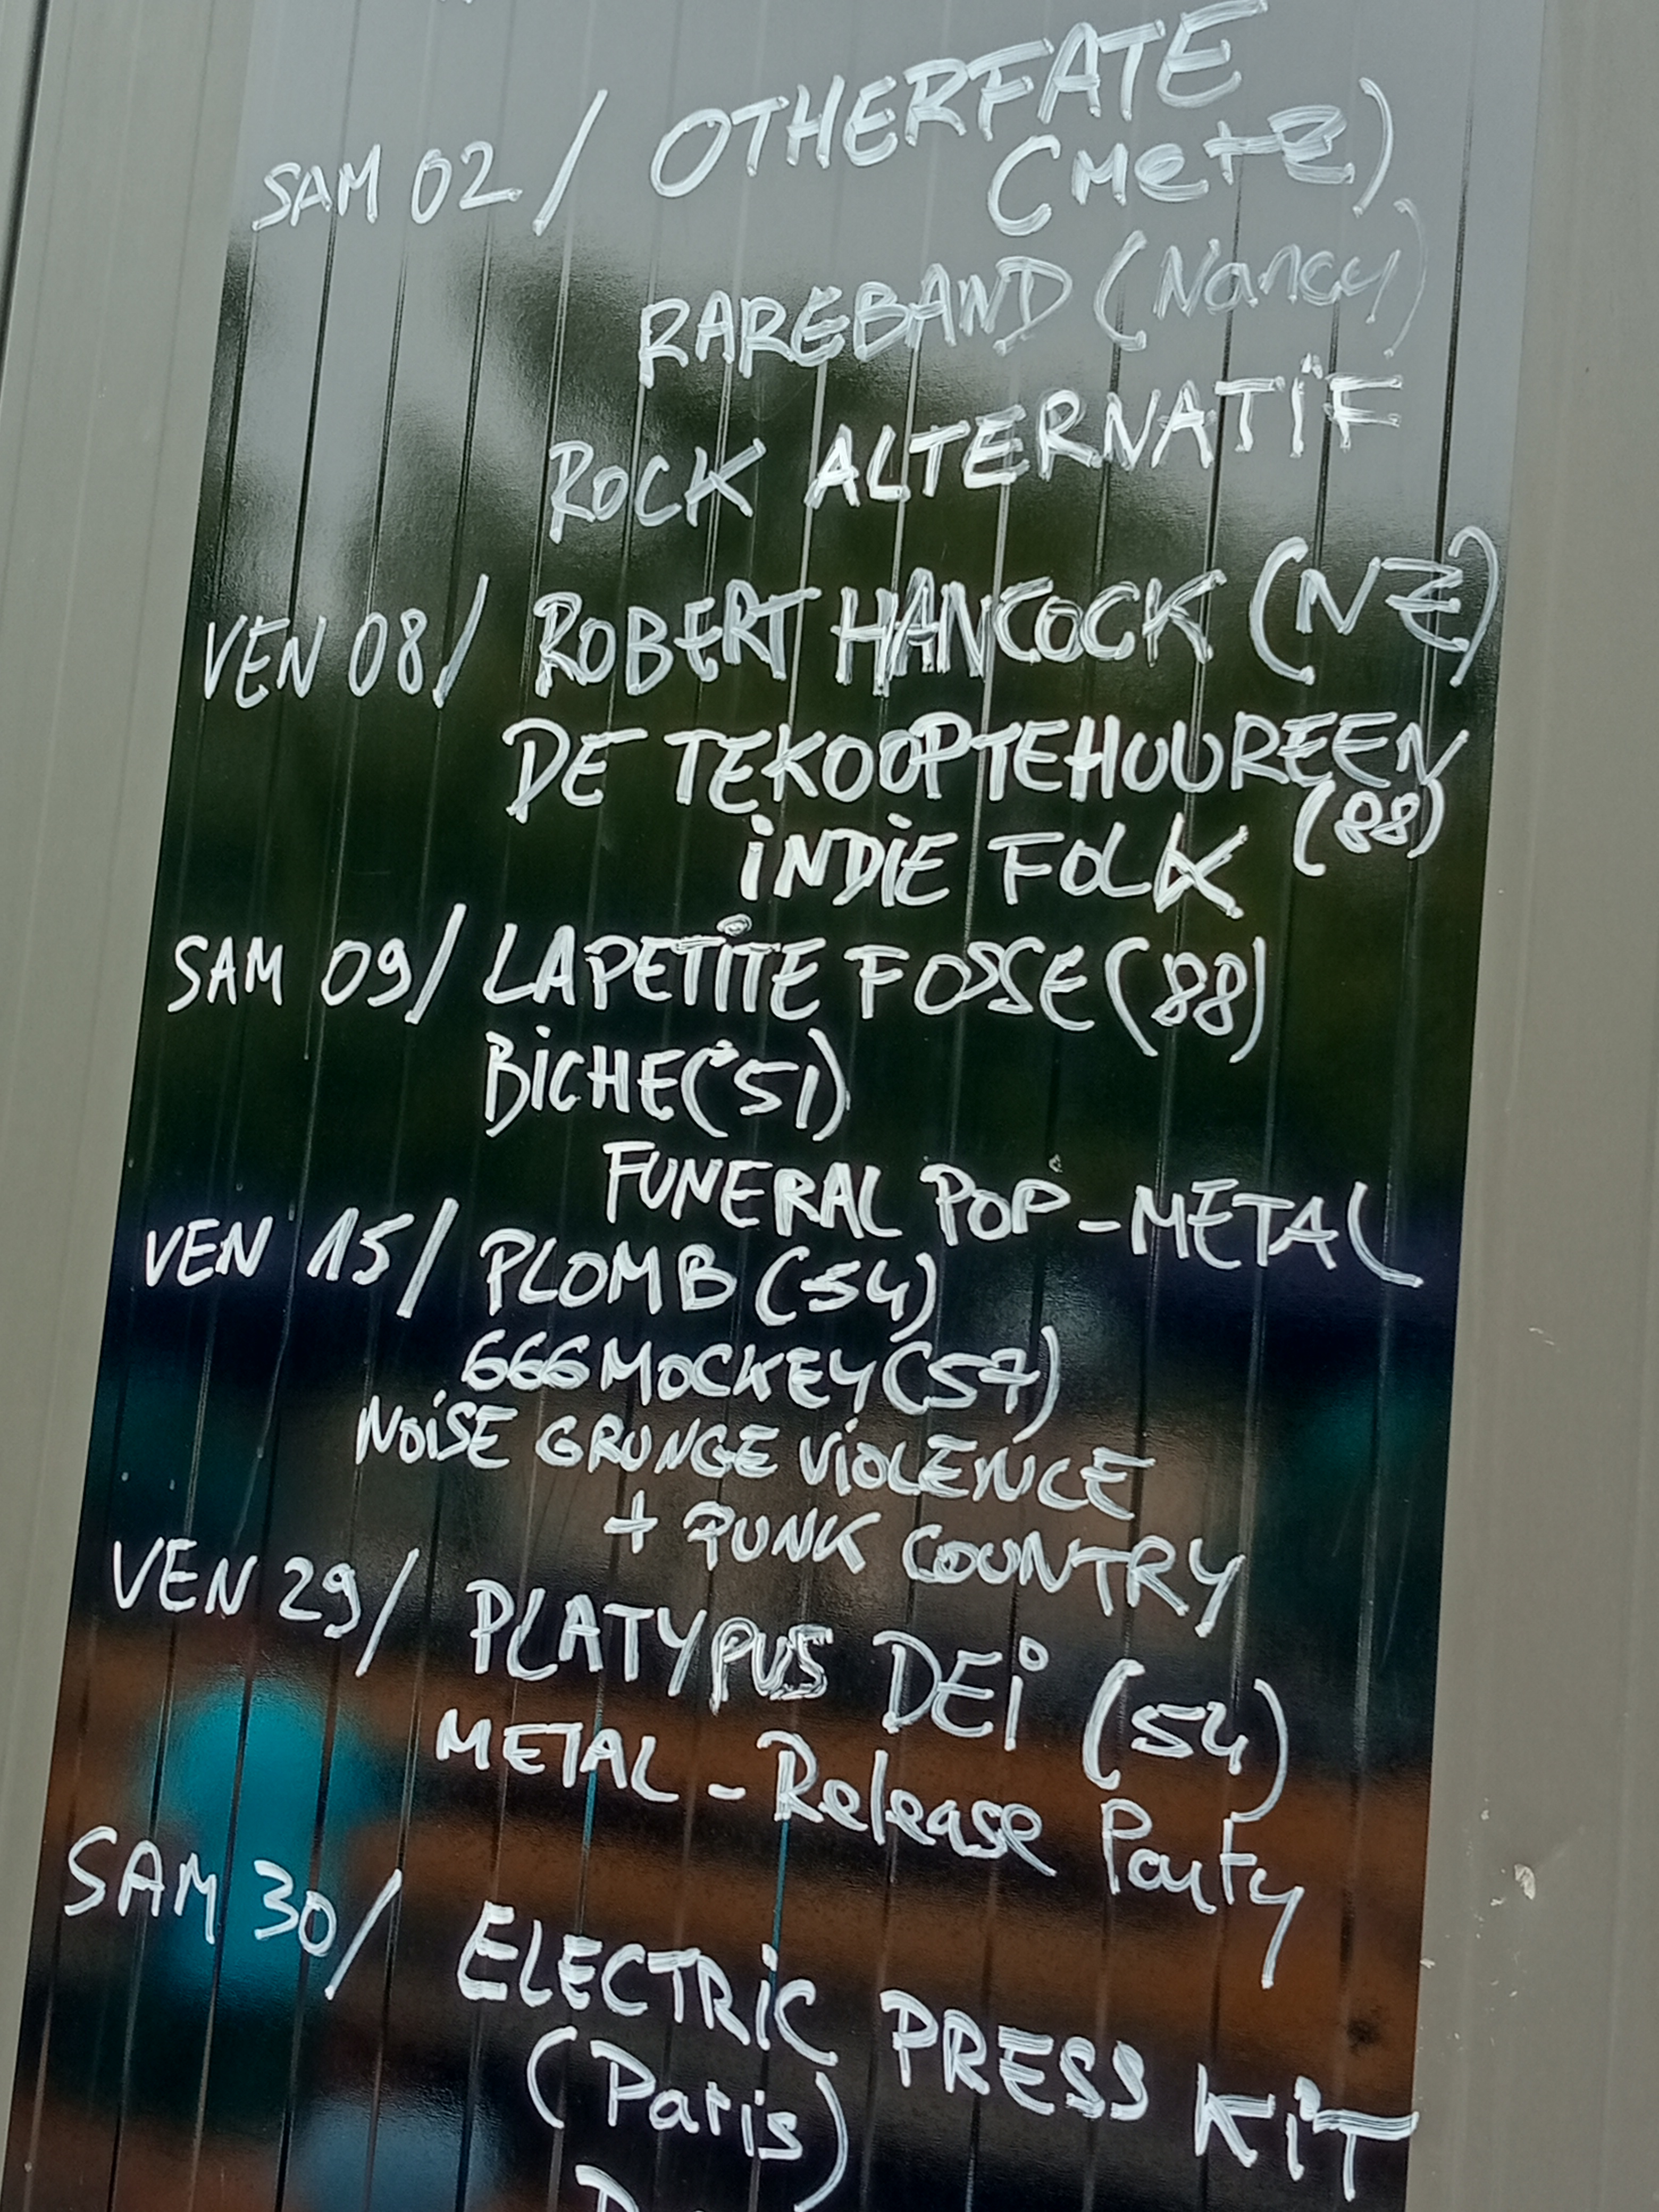 SAM 02 / OTHERFATE
(Metz)
RAREBAND (Nancy)
ROCK ALTERNATIF
VEN 08 / ROBERT HANCOCK (NZ)
DE TEKOOPTEHUUREEN
(88)
INDIE FOLK
SAM 09 / LA PETITE FOSSE (88)
BICHE (51)
FUNERAL POP - METAL
VEN 15 / PLOMB (54)
666MOCKEY (57)
NOISE GRUNGE VIOLENCE
+ PUNK COUNTRY
VEN 29 / PLATYPUS DEI (54)
METAL - Release Party
SAM 30 / ELECTRIC PRESS KIT
(Paris)